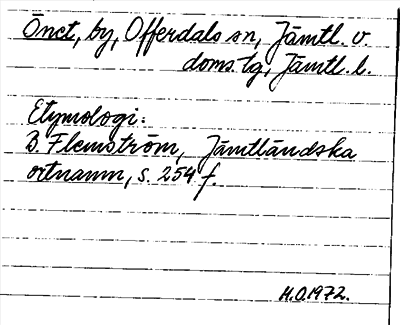 Önet, by, Offerdals sn, Jämtl. v.
doms. tg, Jämtl. l.
Etymologi:
B. Flemström, Jämtländska
ortnamn, s. 254 f.
H.O.1972.